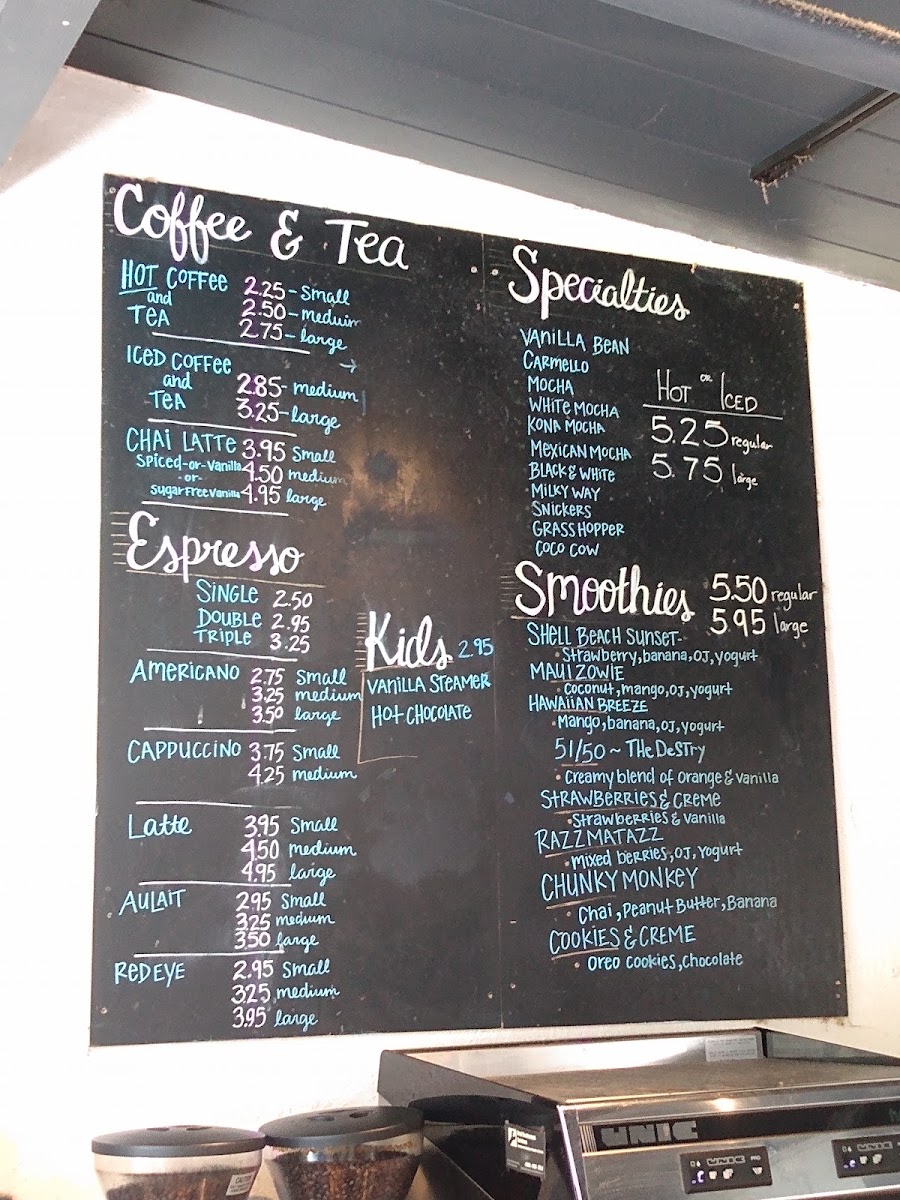 Coffee & Tea
HOT COFFEE
and
TEA
2.25 - Small
2.50 - meduim
2.75 - large
ICED COFFEE
and
TEA
2.85 - medium
3.25 - large
CHAI LATTE
Spiced-or-Vanilla
-or-
SugarFreeVanilla
3.95 Small
4.50 medium
4.95 large
Espresso
SINGLE 2.50
DOUBLE 2.95
TRIPLE 3.25
AMERICANO 2.75 Small
3.25 medium
3.50 large
CAPPUCCINO 3.75 Small
4.25 medium
Latte 3.95 Small
4.50 medium
4.95 large
AULAIT 2.95 Small
3.25 medium
3.50 large
REDEYE 2.95 Small
3.25 medium
3.95 large
Kids 2.95
VANILLA STEAMER
HOT CHOCOLATE
Specialties
VANILLA BEAN
CARMELLO
MOCHA
WHITE MOCHA
KONA MOCHA
MEXICAN MOCHA
BLACK & WHITE
MILKY WAY
SNICKERS
GRASSHOPPER
COCO COW
HOT OR ICED
5.25 regular
5.75 large
Smoothies 5.50 regular
5.95 large
SHELL BEACH SUNSET-
• Strawberry, banana, OJ, yogurt
MAUI ZOWIE
• Coconut, mango, OJ, yogurt
HAWAIIAN BREEZE
• Mango, banana, OJ, yogurt
51/50 ~ THE DESTRY
• Creamy blend of orange & vanilla
STRAWBERRIES & CREME
• Strawberries & Vanilla
RAZZMATAZZ
• mixed berries, OJ, yogurt
CHUNKY MONKEY
• Chai, Peanut Butter, Banana
COOKIES & CREME
• Oreo cookies, chocolate
UNIC
UNIC PRO
UNIC
CAUTION